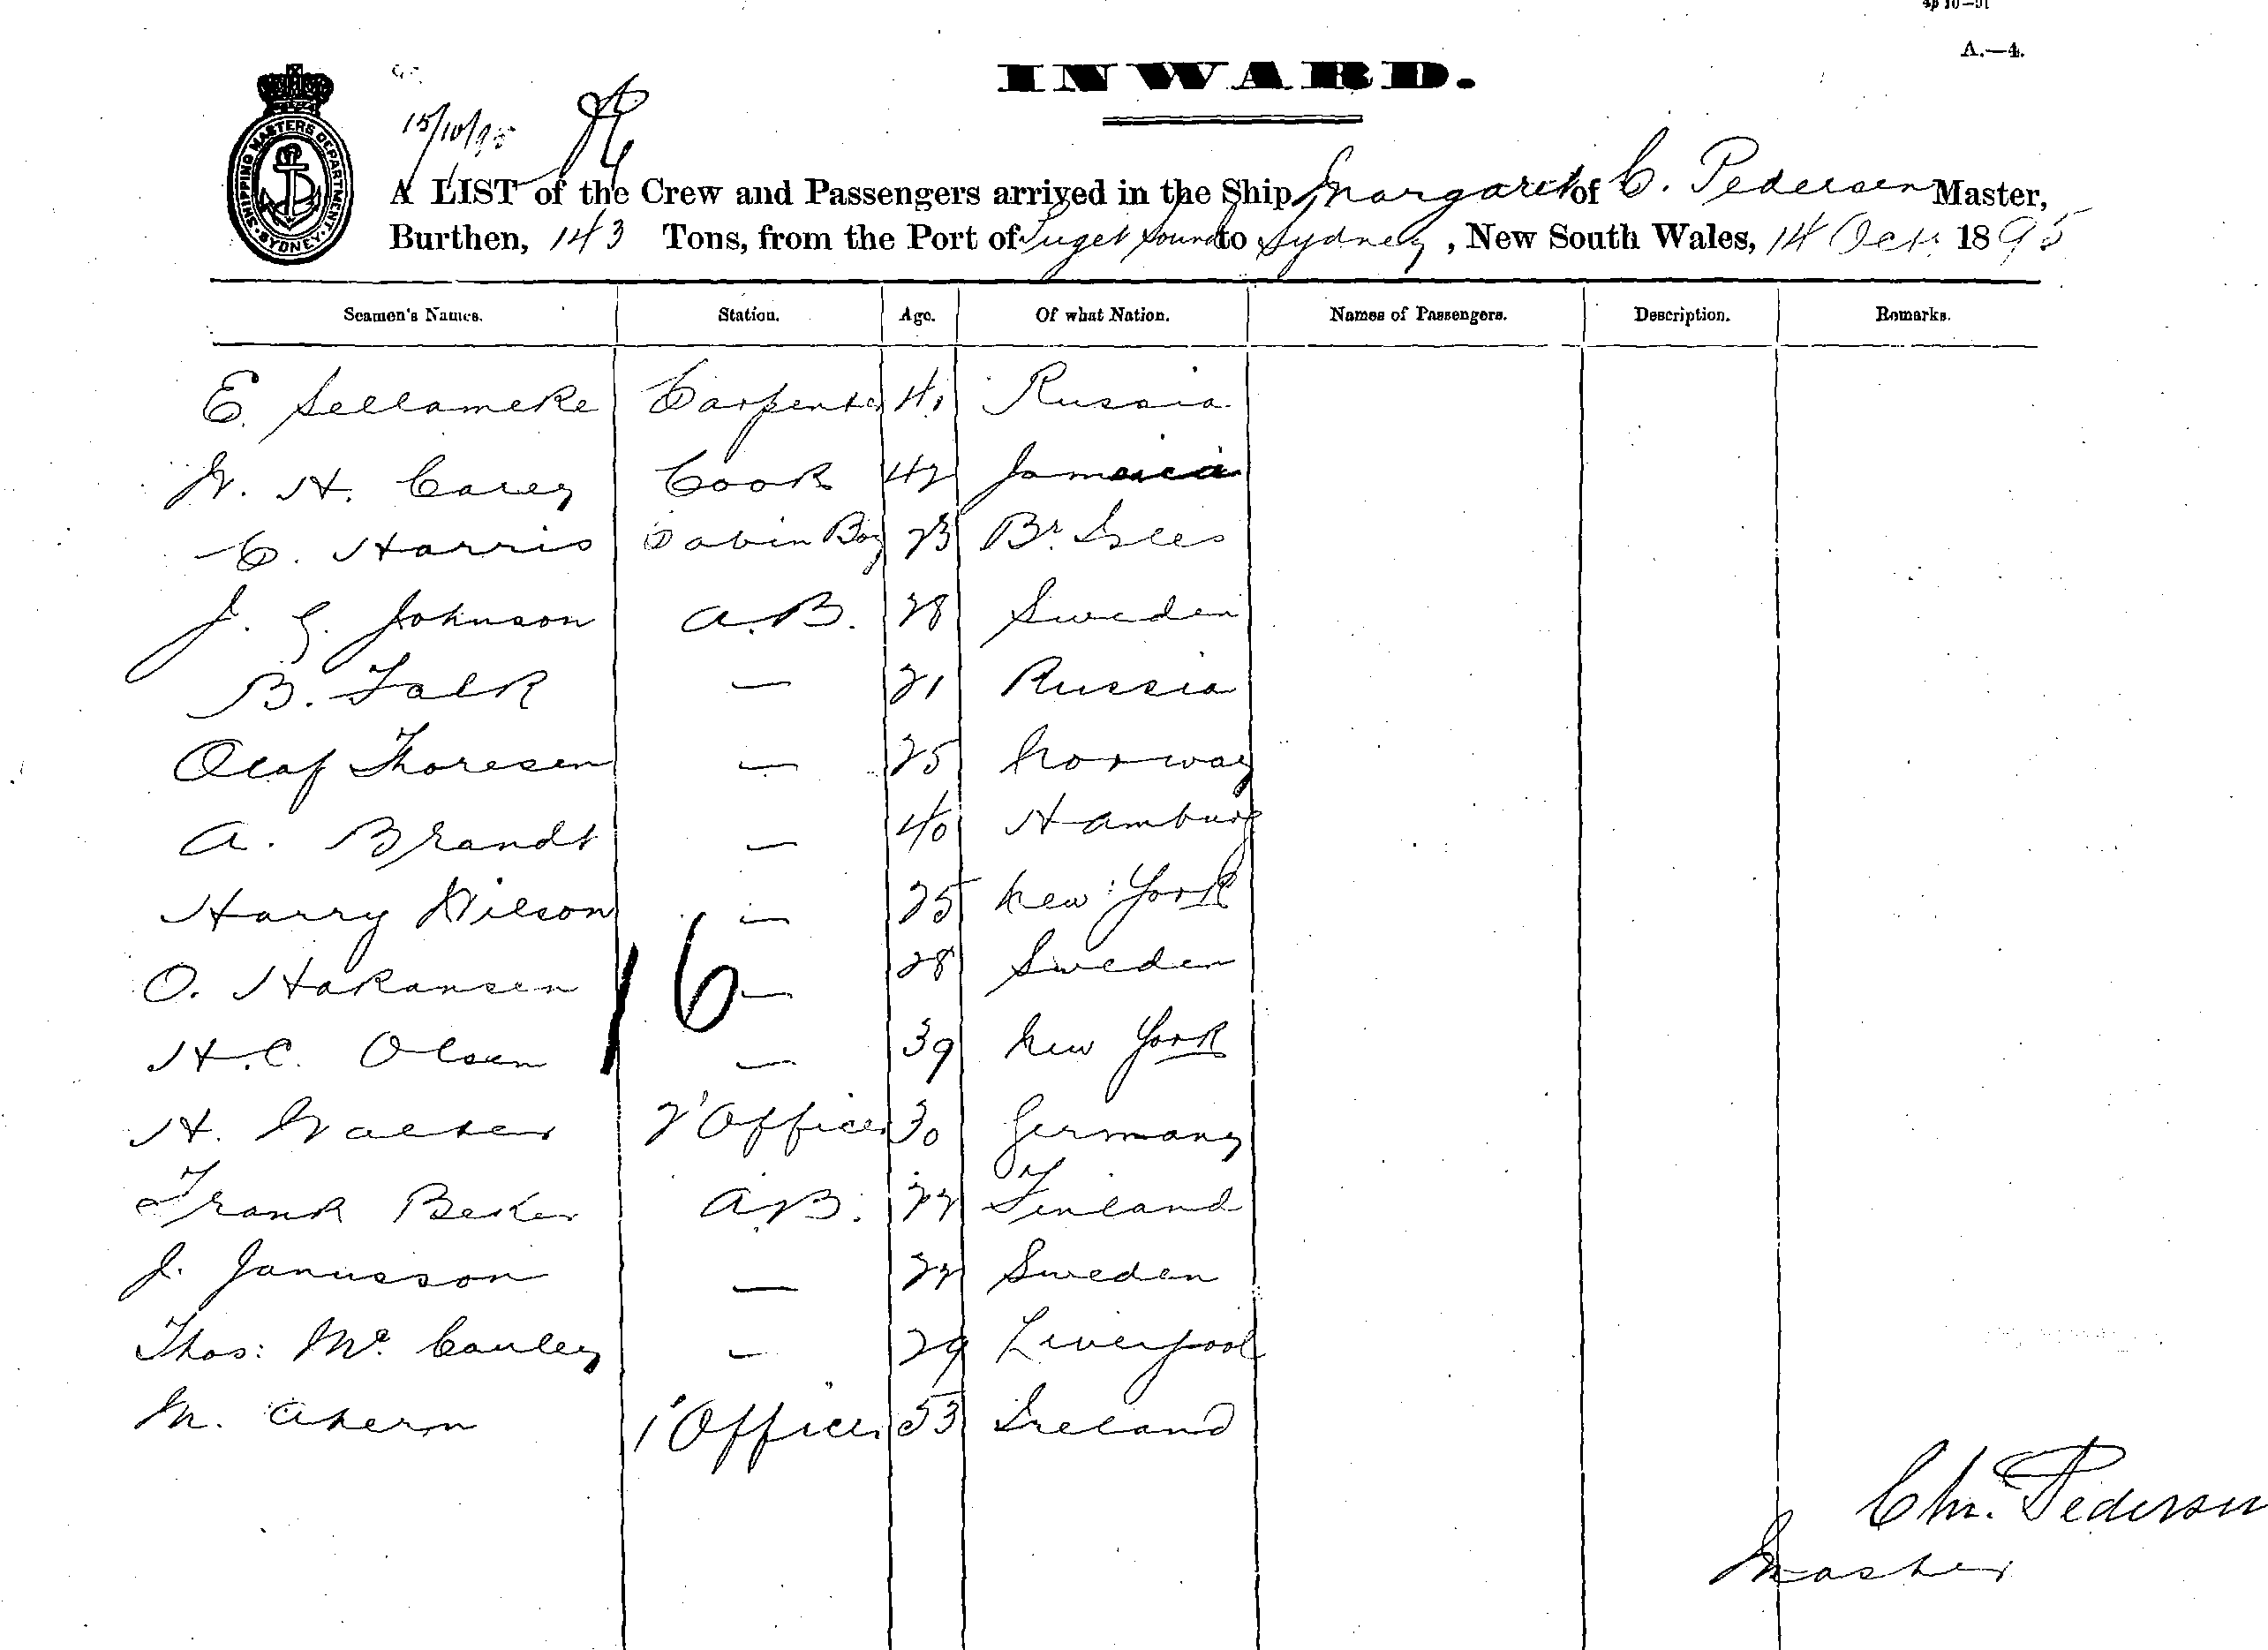 A.—4.
INWARD.
15/10/95
SHIPPING MASTERS DEPARTMENT SYDNEY
A LIST of the Crew and Passengers arrived in the Ship Margaret of C. Pedersen Master,
Burthen, 143 Tons, from the Port of Puget Sound to Sydney, New South Wales, 14 Oct. 1895
Seamen's Names. Station. Age. Of what Nation. Names of Passengers. Description. Remarks.
E. Sellameke Carpenter 41 Russia
W. H. Carey Cook 42 Jamaica
C. Harris Cabin Boy 23 Br. Isles
J. G. Johnson A.B. 28 Sweden
B. Falk — 21 Russia
Olaf Thoresen — 25 Norway
A. Brandt — 40 Hamburg
Harry Wilson — 25 New York
O. Hakansen — 28 Sweden
16
H.C. Olsen — 39 New York
H. Walter 2' Officer 30 Germany
Frank Beker A.B. 22 Finland
J. Janusson — 22 Sweden
Thos: Mc. Cauley — 29 Liverpool
M. Ahern 1' Officer 53 Ireland
Chr. Pedersen
Master